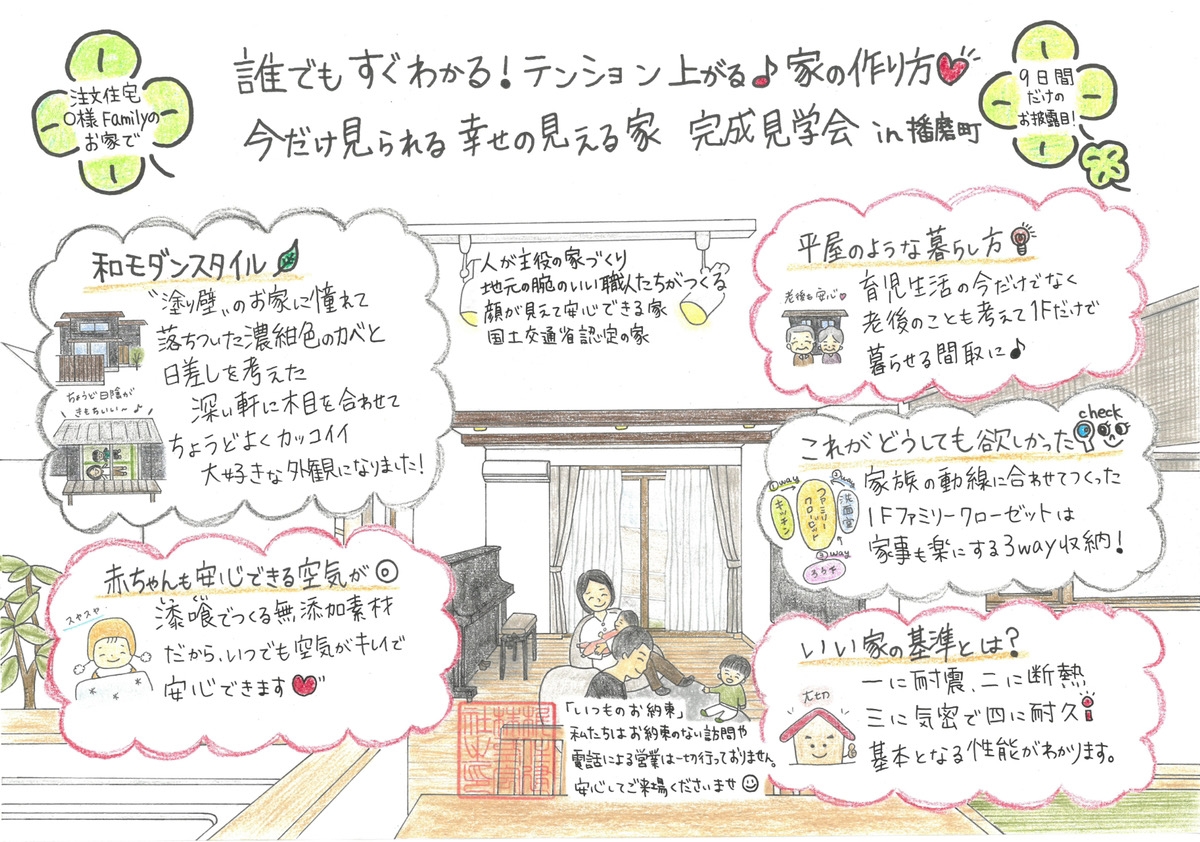 注文住宅
O様Familyの
お家で
誰でもすぐわかる!テンション上がる♪家の作り方
今だけ見られる幸せの見える家 完成見学会 in 播磨町
9日間
だけの
お披露目!
和モダンスタイル
"塗り壁"のお家に憧れて
落ちついた濃紺色のカベと
日差しを考えた
深い軒に木目を合わせて
ちょうどよくカッコイイ
大好きな外観になりました!
ちょうど日陰が
きもちいい〜♪
人が主役の家づくり
地元の腕のいい職人たちがつくる
顔が見えて安心できる家
国土交通省認定の家
平屋のような暮らし方
老後も安心
育児生活の今だけでなく
老後のことも考えて1Fだけで
暮らせる間取に♪
これがどうしても欲しかった
check
家族の動線に合わせてつくった
1Fファミリークローゼットは
家事も楽にする3way収納!
①way
キッチン
ファミリー
クローゼット
②way
洗面室
③way
赤ちゃんも安心できる空気が◎
スヤスヤ
しっくい
漆喰でつくる無添加素材
だから、いつでも空気がキレイで
安心できます
いい家の基準とは?
大切
一に耐震、二に断熱
三に気密で四に耐久
基本となる性能がわかります。
「いつものお約束」
私たちはお約束のない訪問や
電話による営業は一切行っておりません。
安心してご来場くださいませ